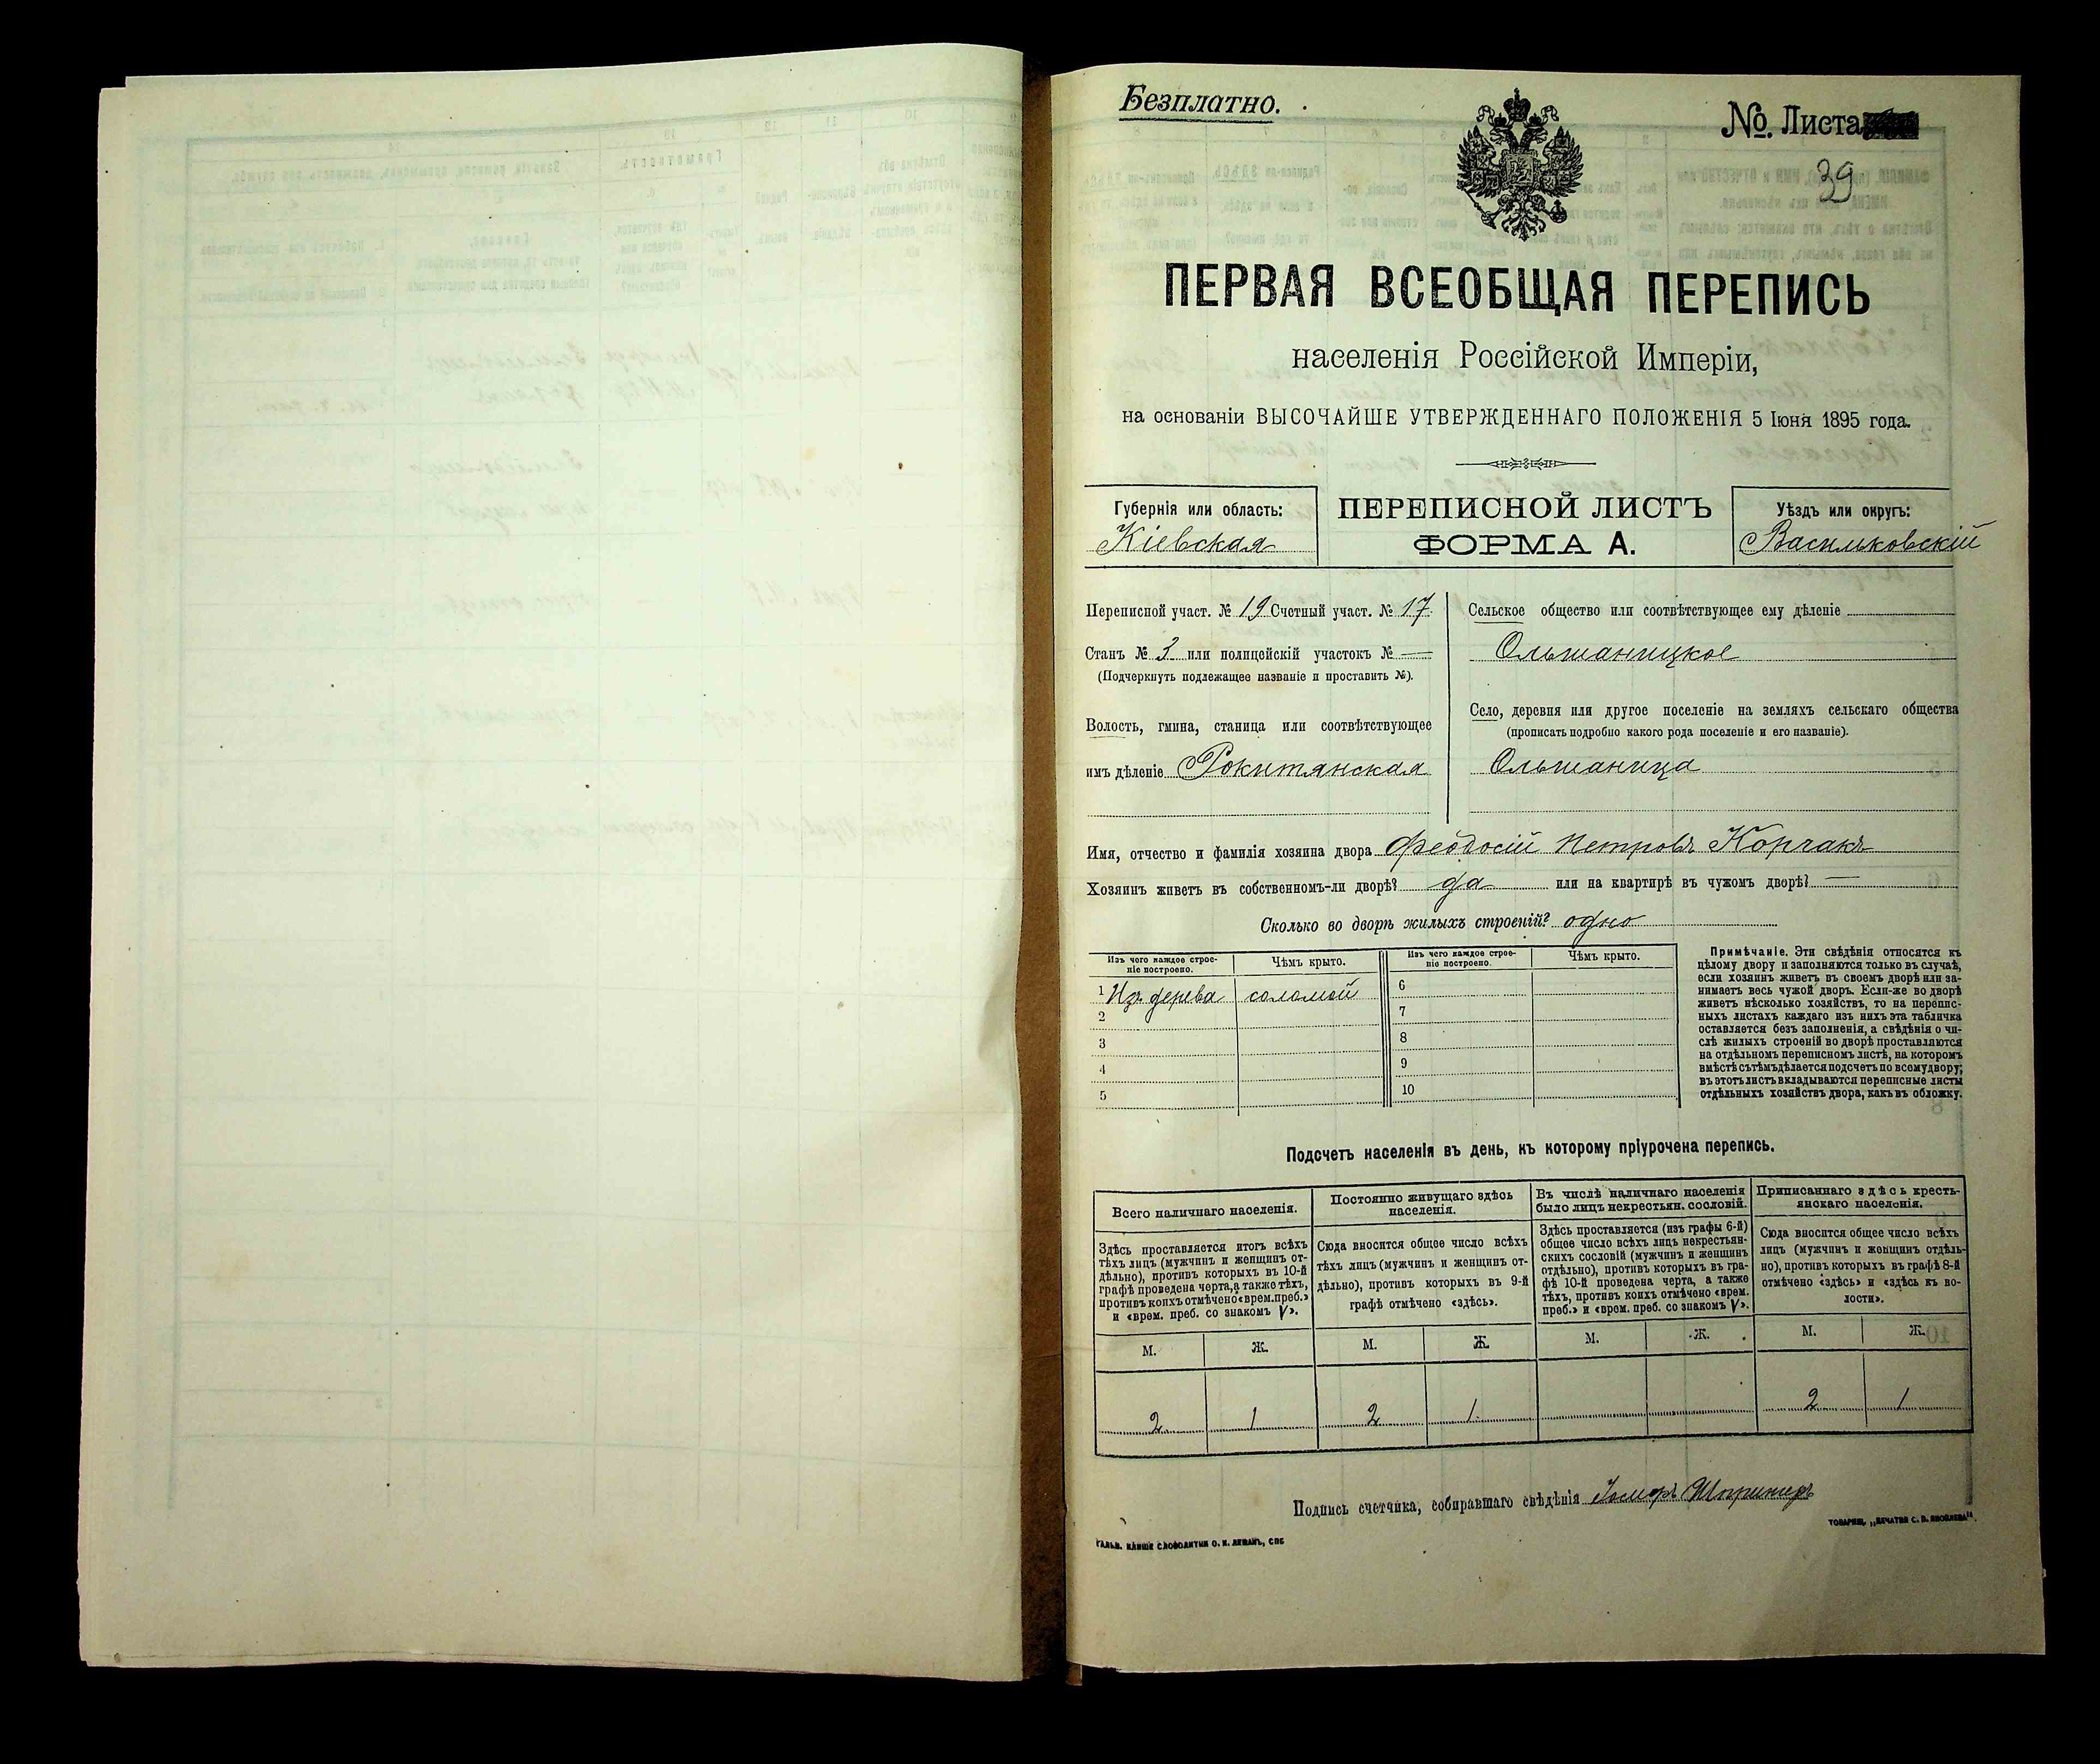 Безплатно.
№. Листа
39
ПЕРВАЯ ВСЕОБЩАЯ ПЕРЕПИСЬ
населенія Россійской Имперіи,
на основаніи ВЫСОЧАЙШЕ УТВЕРЖДЕННАГО ПОЛОЖЕНІЯ 5 Іюня 1895 года.
Губернія или область:
Кіевская
ПЕРЕПИСНОЙ ЛИСТЪ
ФОРМА А.
Уѣздъ или округъ:
Васильковскій
Переписной участ. № 19 Счетный участ. № 17
Станъ № 3 или полицейскій участокъ № —
(Подчеркнуть подлежащее названіе и проставить №).
Волость, гмина, станица или соотвѣтствующее
имъ дѣленіе Рокитянская
Сельское общество или соотвѣтствующее ему дѣленіе
Ольшаницкое
Село, деревня или другое поселеніе на земляхъ сельскаго общества
(прописать подробно какого рода поселеніе и его названіе).
Ольшаница
Имя, отчество и фамилія хозяина двора Феодосій Петровъ Корчакъ
Хозяинъ живетъ въ собственномъ-ли дворѣ? да или на квартирѣ въ чужомъ дворѣ? —
Сколько во дворѣ жилыхъ строеній? одно
Изъ чего каждое строе-
ніе построено.
Чѣмъ крыто.
Изъ чего каждое строе-
ніе построено.
Чѣмъ крыто.
1 Изъ дерева соломой
2
3
4
5
6
7
8
9
10
Примѣчаніе. Эти свѣдѣнія относятся къ
цѣлому двору и заполняются только въ случаѣ,
если хозяинъ живетъ въ своемъ дворѣ или за-
нимаетъ весь чужой дворъ. Если-же во дворѣ
живетъ нѣсколько хозяйствъ, то на перепис-
ныхъ листахъ каждаго изъ нихъ эта табличка
оставляется безъ заполненія, а свѣдѣнія о чи-
слѣ жилыхъ строеній во дворѣ проставляются
на отдѣльномъ переписномъ листѣ, на которомъ
вмѣстѣ съ тѣмъ дѣлается подсчетъ по всему двору;
въ этотъ листъ вкладываются переписные листы
отдѣльныхъ хозяйствъ двора, какъ въ обложку.
Подсчетъ населенія въ день, къ которому пріурочена перепись.
Всего наличнаго населенія.
Здѣсь проставляется итогъ всѣхъ
тѣхъ лицъ (мужчинъ и женщинъ от-
дѣльно), противъ которыхъ въ 10-й
графѣ проведена черта, а также тѣхъ,
противъ коихъ отмѣчено «врем. преб.»
и «врем. преб. со знакомъ V».
Постоянно живущаго здѣсь
населенія.
Сюда вносится общее число всѣхъ
тѣхъ лицъ (мужчинъ и женщинъ от-
дѣльно), противъ которыхъ въ 9-й
графѣ отмѣчено «здѣсь».
Въ числѣ наличнаго населенія
было лицъ некрестьян. сословій.
Здѣсь проставляется (изъ графы 6-й)
общее число всѣхъ лицъ некрестьян-
скихъ сословій (мужчинъ и женщинъ
отдѣльно), противъ которыхъ въ гра-
фѣ 10-й проведена черта, а также
тѣхъ, противъ коихъ отмѣчено «врем.
преб.» и «врем. преб. со знакомъ V».
Приписаннаго здѣсь кресть-
янскаго населенія.
Сюда вносится общее число всѣхъ
лицъ (мужчинъ и женщинъ отдѣль-
но), противъ которыхъ въ графѣ 8-й
отмѣчено «здѣсь» и «здѣсь къ во-
лости».
М. Ж. М. Ж. М. Ж. М. Ж.
2 1 2 1 2 1
Подпись счетчика, собиравшаго свѣдѣнія